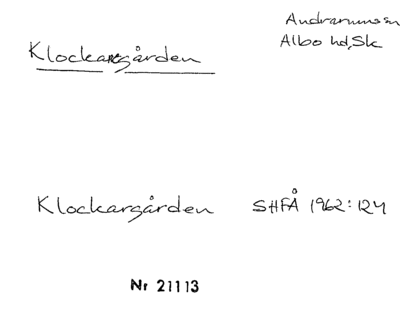 Andrarums sn
Albo hd, Sk
Klockaregården
Klockargården SHFÅ 1962: 124
Nr 21113